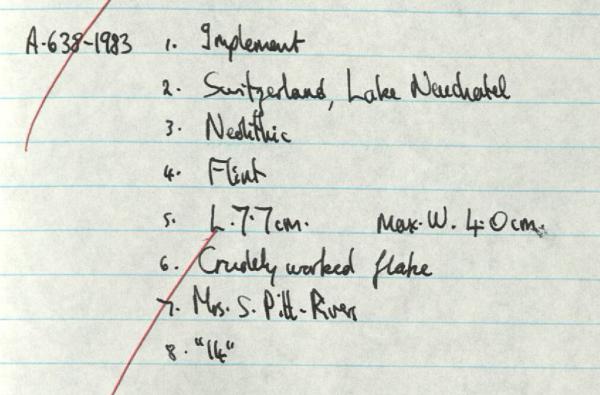 A·638-1983 1. Implement
2. Switzerland, Lake Neuchatel
3. Neolithic
4. Flint
5. L. 7·7cm. Max. W. 4·0cm.
6. Crudely worked flake
7. Mrs. S. Pitt-Rivers
8. "14"